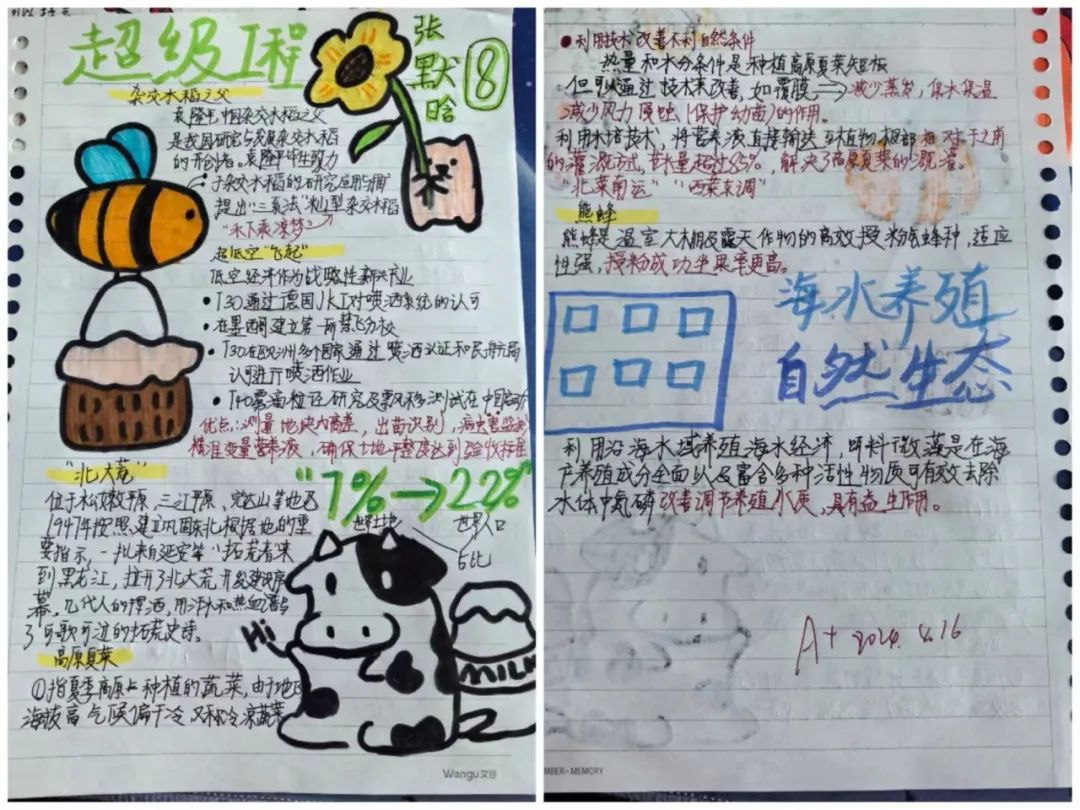 超级工程
张
默
晗
⑧
杂交水稻之父
袁隆平中国杂交水稻之父
是我国研究与发展杂交水稻
的开创者。袁隆平毕生致力
于杂交水稻的研究应用与推广
提出"三系法"籼型杂交水稻
"禾下乘凉梦"
超低空"飞起"
低空经济作为战略性新兴产业
•T30通过德国JKI对喷洒系统的认可
•在墨西哥建立第一所慧飞分校
•T30在欧洲多个国家通过喷洒认证和民航局
认可进行喷洒作业
•T40雾滴粒径研究及雾风移测试在中国
优点:测量地块内高差,出苗识别,病虫害监测
精准变量营养液,确保土地平整度达到验收标准
"北大荒"
"7%→22%"
世界土地
世界人口
占比
位于松嫩平原、三江平原、完达山等地区
1947年按照建立巩固东北根据地的重
要指示,一批来自延安等"拓荒者"来
到黑龙江,拉开了北大荒开发建设序
幕。几代人的挥洒,用汗水和热血谱写
了可歌可泣的拓荒史诗。
Hi
MILK
高原夏菜
①指夏季高原上种植的蔬菜,由于地区
海拔高气候偏干冷又称冷凉蔬菜
Wengu文谷
•利用技术改善不利自然条件
热量和水分条件是种植高原夏菜短板
但可以通过技术来改善,如覆膜→减少蒸发,保水保温
减少风力侵蚀(保护幼苗)的作用。
利用水培技术,将营养液直接输送至植物根部相对于之前
的灌溉方式,节水量超过85%,解决了高原夏菜的灌溉。
"北菜南运" "西菜东调"
熊蜂
熊蜂是温室大棚及露天作物的高效授粉蜂种,适应
性强,授粉成功坐果率更高。
海水养殖
自然生态
利用沿海水域养殖海水经济,饵料微藻是在海
产养殖成分全面以及富含多种活性物质可有效去除
水体中氮磷改善调节养殖水质,具有益生作用。
A+ 2024.4.16
MBER-MEMORY